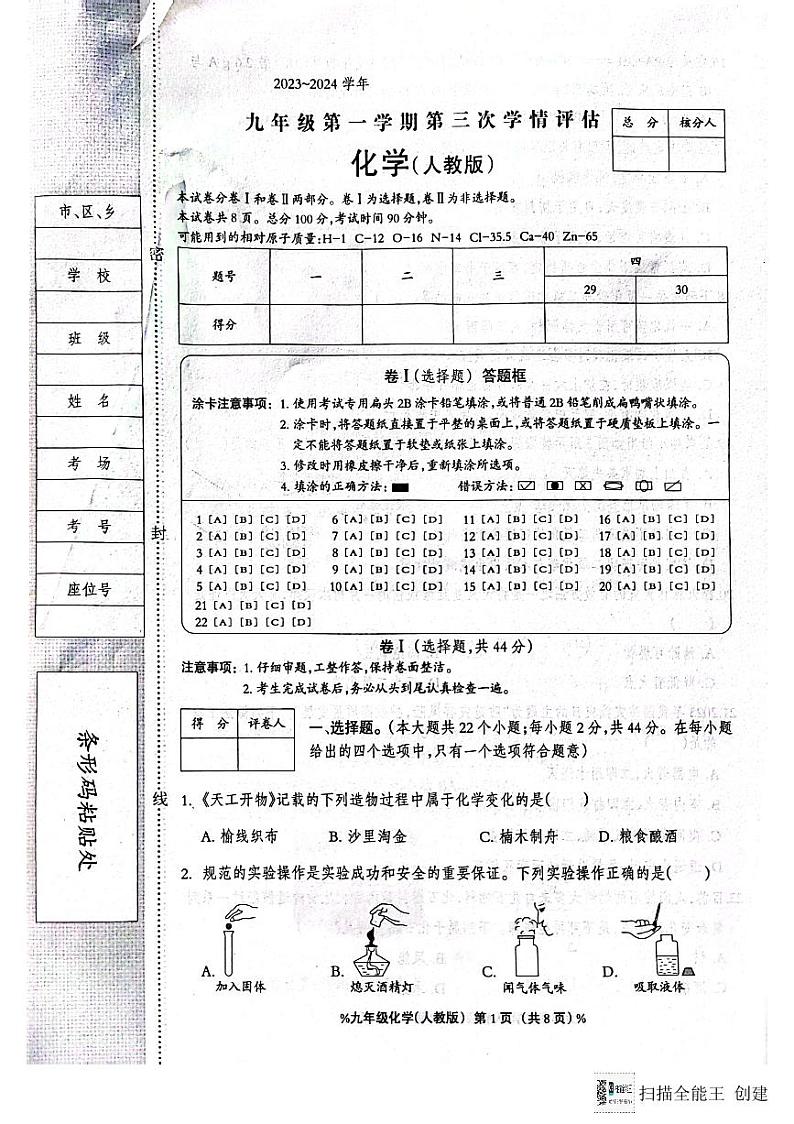 2023~2024 学年
九年级第一学期第三次学情评估
化学(人教版)
总 分 核分人
本试卷分卷Ⅰ和卷Ⅱ两部分。卷Ⅰ为选择题,卷Ⅱ为非选择题。
本试卷共8页。总分100分,考试时间90分钟。
可能用到的相对原子质量:H-1 C-12 O-16 N-14 Cl-35.5 Ca-40 Zn-65
题号 一 二 三 四
29 30
得分
市、区、乡
学 校
班 级
姓 名
考 场
考 号
座位号
密
封
线
条形码粘贴处
卷Ⅰ(选择题) 答题框
涂卡注意事项: 1. 使用考试专用扁头2B涂卡铅笔填涂,或将普通2B铅笔削成扁鸭嘴状填涂。
2. 涂卡时,将答题纸直接置于平整的桌面上,或将答题纸置于硬质垫板上填涂。一
定不能将答题纸置于软垫或纸张上填涂。
3. 修改时用橡皮擦干净后,重新填涂所选项。
4. 填涂的正确方法: 错误方法:
1 [A] [B] [C] [D] 6 [A] [B] [C] [D] 11 [A] [B] [C] [D] 16 [A] [B] [C] [D]
2 [A] [B] [C] [D] 7 [A] [B] [C] [D] 12 [A] [B] [C] [D] 17 [A] [B] [C] [D]
3 [A] [B] [C] [D] 8 [A] [B] [C] [D] 13 [A] [B] [C] [D] 18 [A] [B] [C] [D]
4 [A] [B] [C] [D] 9 [A] [B] [C] [D] 14 [A] [B] [C] [D] 19 [A] [B] [C] [D]
5 [A] [B] [C] [D] 10 [A] [B] [C] [D] 15 [A] [B] [C] [D] 20 [A] [B] [C] [D]
21 [A] [B] [C] [D]
22 [A] [B] [C] [D]
卷Ⅰ (选择题,共44分)
注意事项: 1. 仔细审题,工整作答,保持卷面整洁。
2. 考生完成试卷后,务必从头到尾认真检查一遍。
得 分 评卷人
一、选择题。(本大题共22个小题;每小题2分,共44分。在每小题
给出的四个选项中,只有一个选项符合题意)
1. 《天工开物》记载的下列造物过程中属于化学变化的是( )
A. 榆线织布 B. 沙里淘金 C. 楠木制舟 D. 粮食酿酒
2. 规范的实验操作是实验成功和安全的重要保证。下列实验操作正确的是( )
A. B. C. D.
加入固体 熄灭酒精灯 闻气体气味 吸取液体
%九年级化学(人教版) 第1页 (共8页)%
扫描全能王 创建